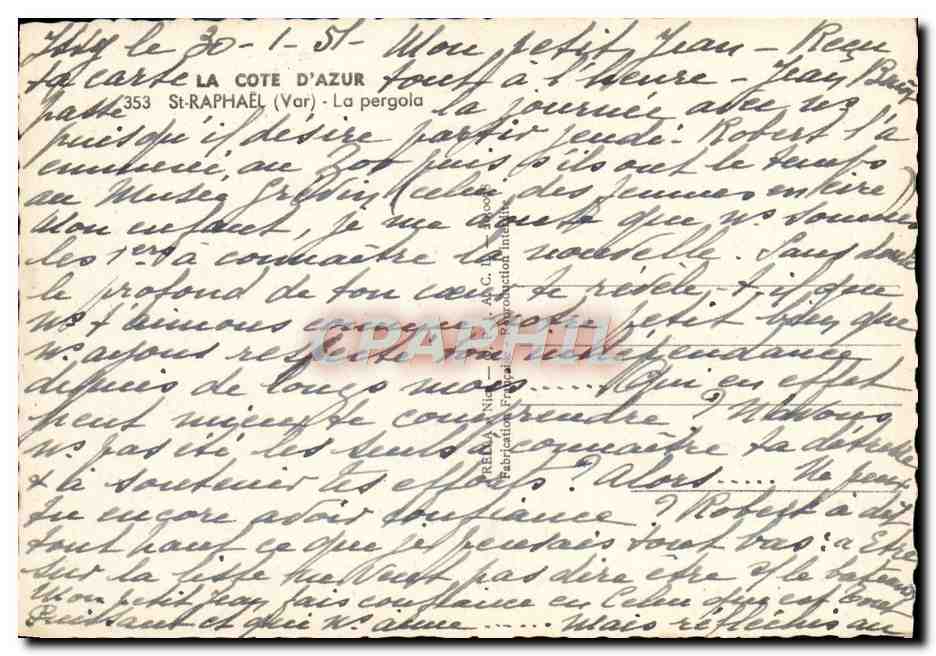 le 30-1-51- Mon petit Jean - Reçu
ta carte LA COTE D'AZUR tout à l'heure - Jean
353 St-RAPHAËL (Var) - La pergola
passe la journée avec ns
puisqu'il désire partir jeudi. Robert l'a
emmené au Zoo puis s'ils ont le temps
au Musée Grévin (celui des femmes en cire)
Mon enfant, je me doute que ns sommes
les 1ers à connaître la nouvelle. Sans doute
le profond de ton cœur te révèle-t-il que
ns t'aimons comme notre petit bien que
ns ayons respecté ton indépendance
depuis de longs mois ...... Qui en effet
peut mieux te comprendre ? N'avons
ns pas été les seuls à connaître ta détresse
& à soutenir tes efforts ? Alors ..... Ne peux
tu encore avoir confiance ? Robert a dit
tout haut ce que je pensais tout bas : "Etre
sur la liste ne veut pas dire être s/ le bateau"
Mon petit Jean, fais confiance en Celui qui est tout
Puissant et qui ns aime ...... Mais réfléchis au
RELLA, Nice
Fabrication Française - Reproduction Interdite
CPAPHIL